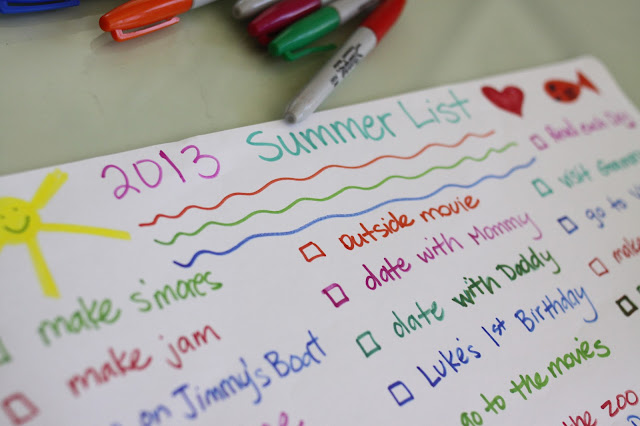 2013 Summer List
make s'mores
make jam
on Jimmy's Boat
outside movie
date with Mommy
date with Daddy
Luke's 1st Birthday
go to the movies
the zoo
Read each Day
visit
go to
make
Sharpie